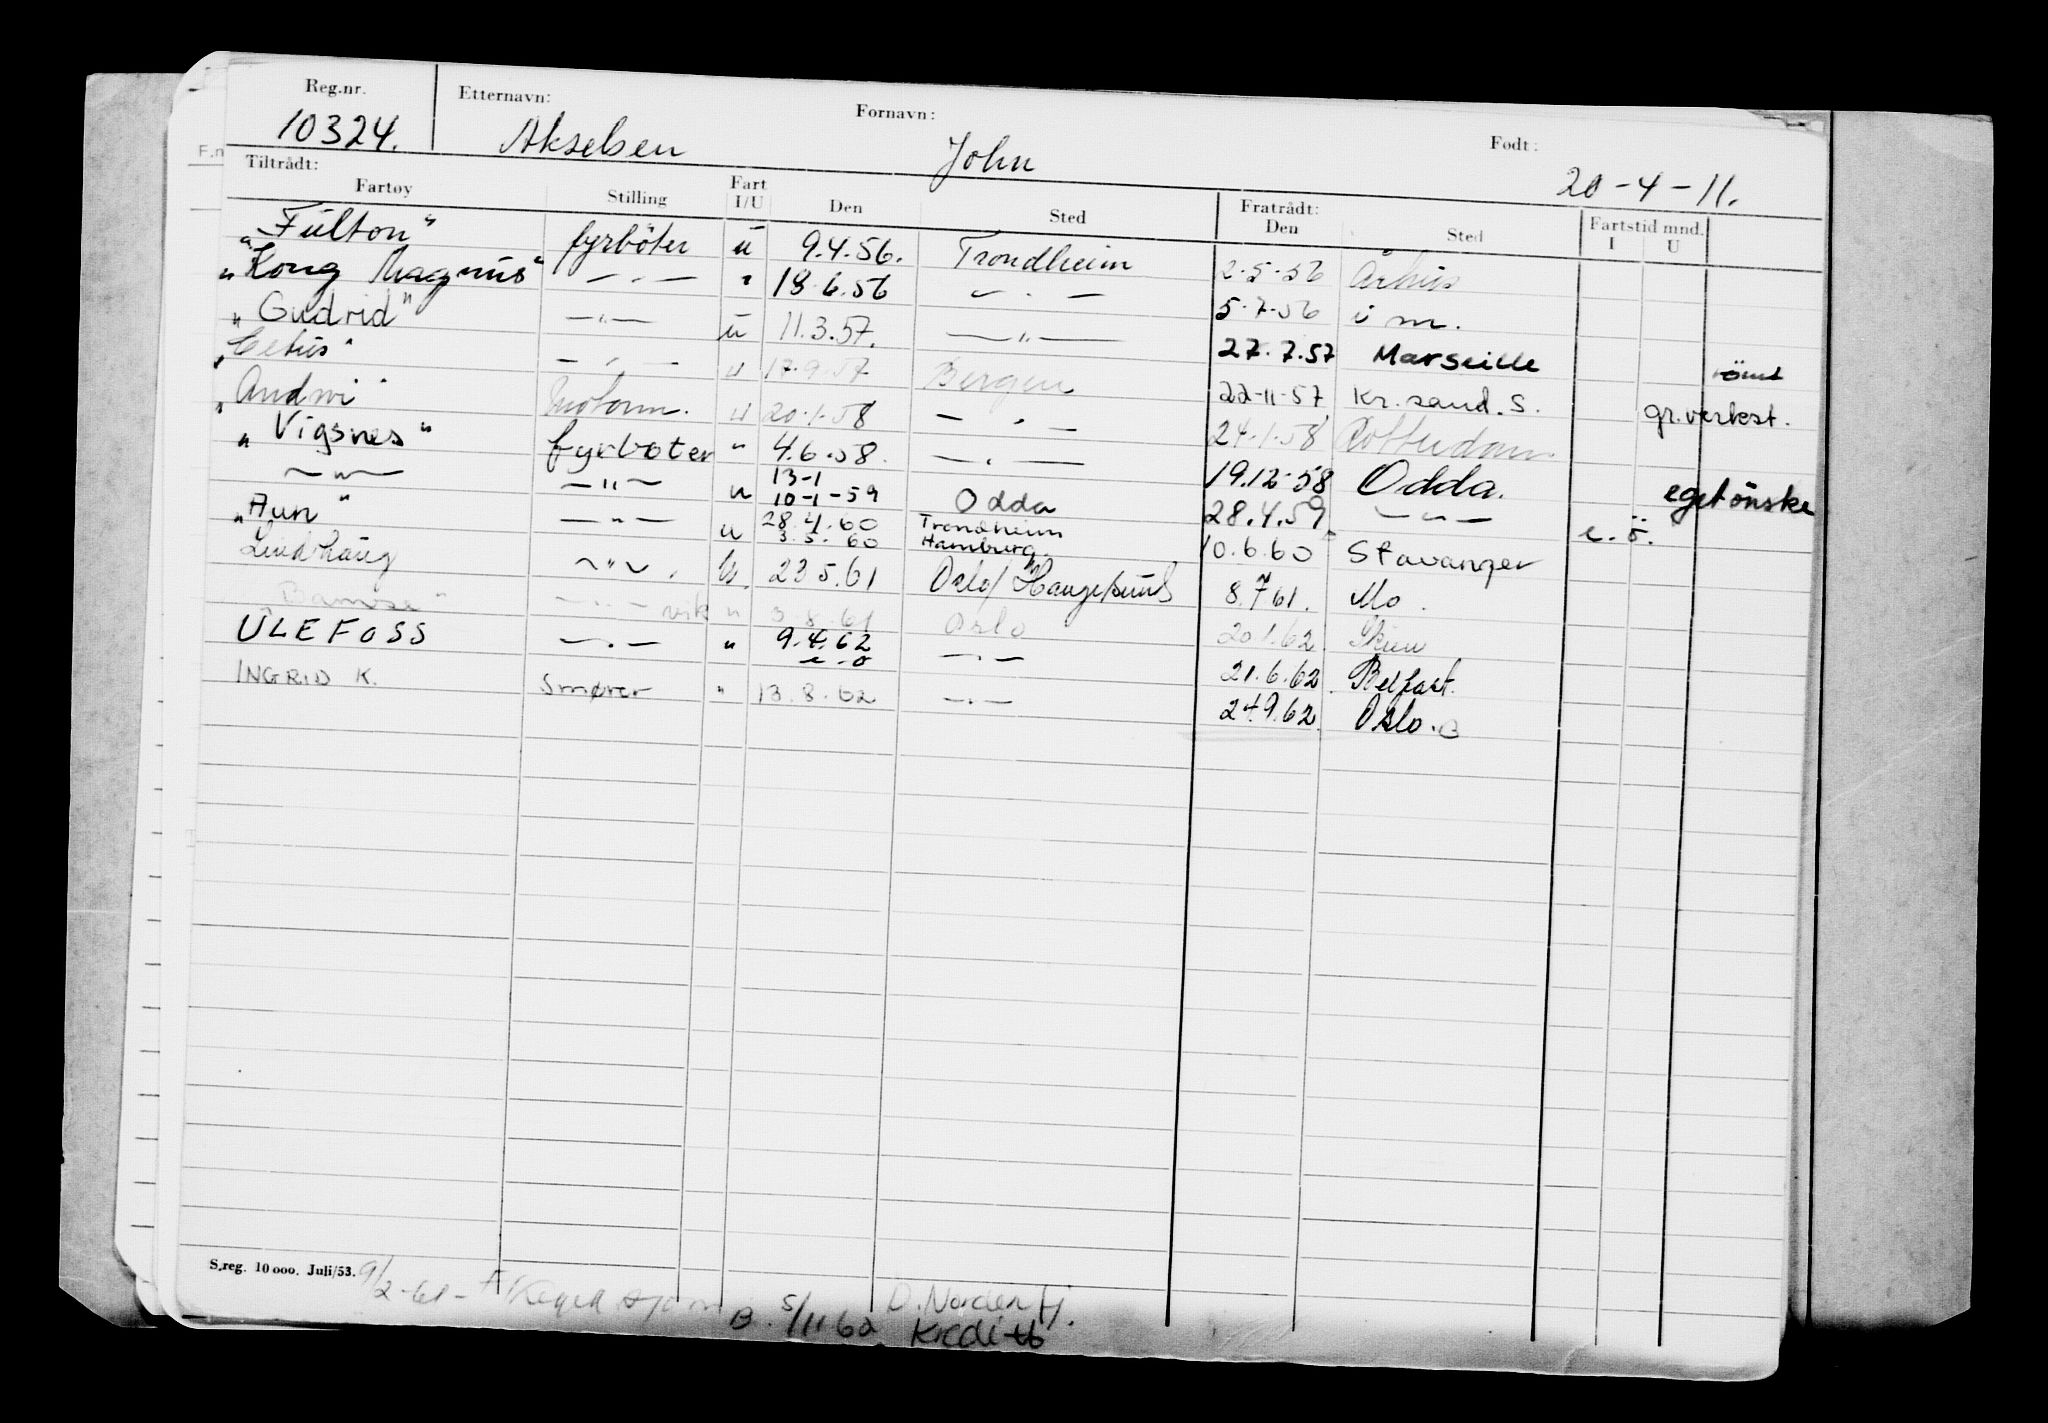 Reg.nr. Etternavn: Fornavn: Født:
10324. Akselsen John 20-4-11.
Tiltrådt: Fratrådt:
Fartøy Stilling Fart I/U Den Sted Den Sted Fartstid mnd. I U
"Fülton" fyrböter ü 9.4.56. Trondheim 2.5.56 Århüs
"Kong Magnüs" — . — " 18.6.56 — . — 5.7.56 i m.
"Gudrid" — " — ü 11.3.57. — " — 27.7.57 Marseille römt
"Cetüs" — " — u 17.9.57 Bergen 22-11-57 Kr.sand.S. gr.verkst.
"Andwi" Motorm. u 20.1.58 — " — 24.1.58 Rotterdam
"Vigsnes" fyrboter " 4.6.58. — " — 19.12-58 Odda. eget önske
— " — — " — u 13-1 10-1-59 Odda 28.4.59 — " — e.ö.
"Aun" — " — u 28.4.60 3.5.60 Trondheim Hamburg. 10.6.60 Stavanger
Lindhaüg — " — . 23 5.61 Oslo/Haugesund 8.7 61. Mo.
— " — vik " 3.8.61 Oslo 20.1.62 Skien
ULEFOSS — " — " 9.4.62 e.o — " — 21.6.62. Belfast.
INGRID K. Smører " 13.8.62 — " — 24.9.62. Oslo. B
S.reg. 10 000. Juli/53. 9/2-61- D. Nordenfj.
B. 5/11 62 Kreditb
F.n